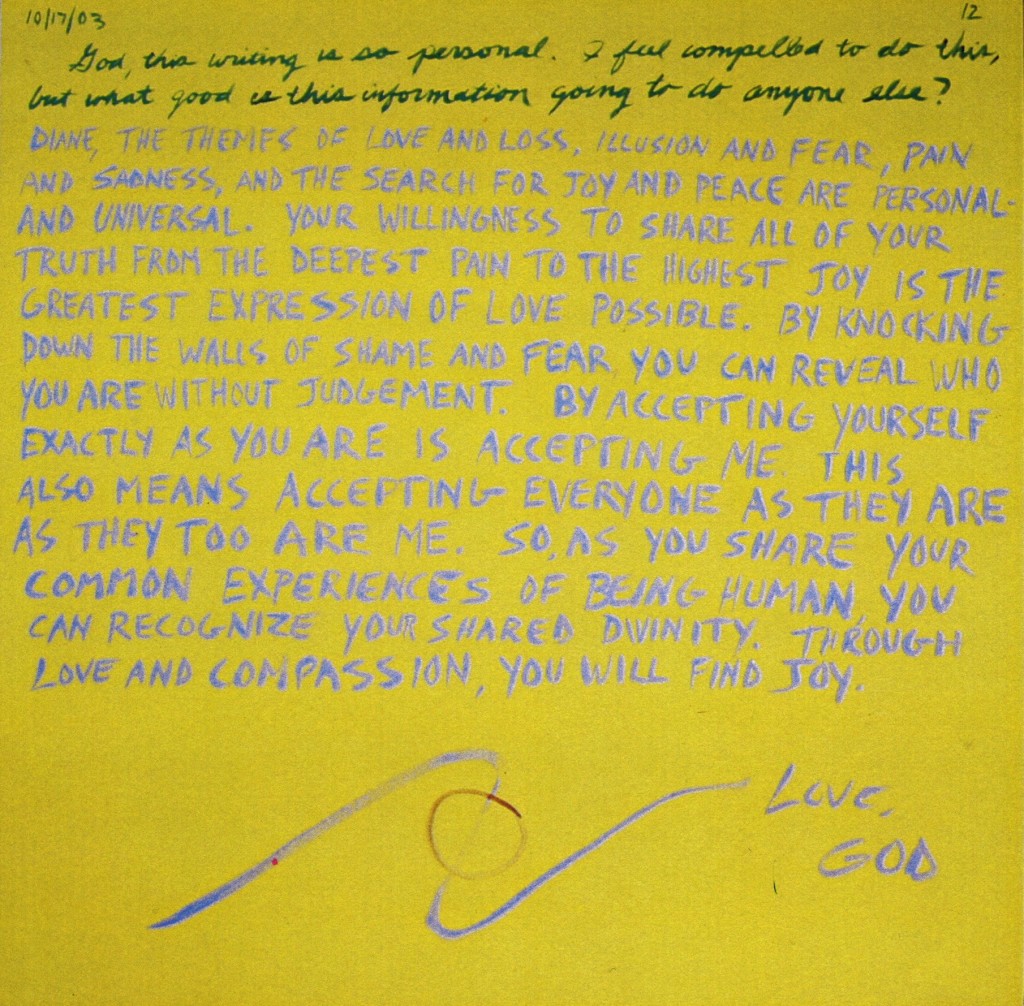 10/17/03 12
God, this writing is so personal. I feel compelled to do this,
but what good is this information going to do anyone else?
DIANE, THE THEMES OF LOVE AND LOSS, ILLUSION AND FEAR, PAIN
AND SADNESS, AND THE SEARCH FOR JOY AND PEACE ARE PERSONAL-
AND UNIVERSAL. YOUR WILLINGNESS TO SHARE ALL OF YOUR
TRUTH FROM THE DEEPEST PAIN TO THE HIGHEST JOY IS THE
GREATEST EXPRESSION OF LOVE POSSIBLE. BY KNOCKING
DOWN THE WALLS OF SHAME AND FEAR YOU CAN REVEAL WHO
YOU ARE WITHOUT JUDGEMENT. BY ACCEPTING YOURSELF
EXACTLY AS YOU ARE IS ACCEPTING ME. THIS
ALSO MEANS ACCEPTING EVERYONE AS THEY ARE
AS THEY TOO ARE ME. SO, AS YOU SHARE YOUR
COMMON EXPERIENCES OF BEING HUMAN, YOU
CAN RECOGNIZE YOUR SHARED DIVINITY. THROUGH
LOVE AND COMPASSION, YOU WILL FIND JOY.
LOVE,
GOD